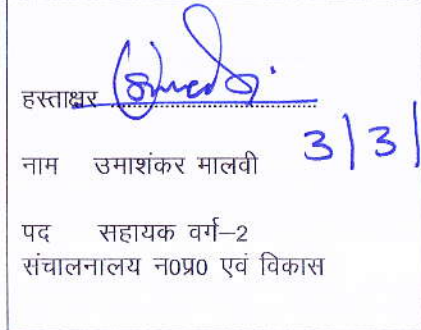 हस्ताक्षर
नाम उमाशंकर मालवी 3/3/
पद सहायक वर्ग–2
संचालनालय न0प्र0 एवं विकास